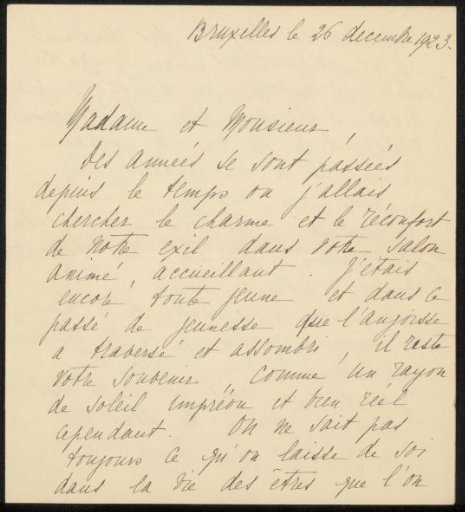 Bruxelles le 26 decembre 1923.
Madame et Monsieur,
Des années se sont passées
depuis le temps ou j'allais
chercher le charme et le réconfort
de notre exil dans votre salon
animé, accueillant. J'étais
encore toute jeune et dans ce
passé de jeunesse que l'angoisse
a traversé et assombri, il reste
votre souvenir comme un rayon
de soleil imprévu et bien réel
cependant. On ne sait pas
toujours ce qu'on laisse de soi
dans la vie des êtres que l'on